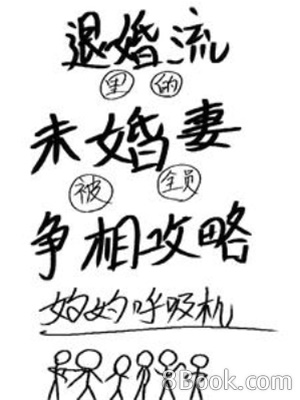 退婚流
里的
未婚妻
被全员
争相攻略
妁妁呼吸机
8Book.com